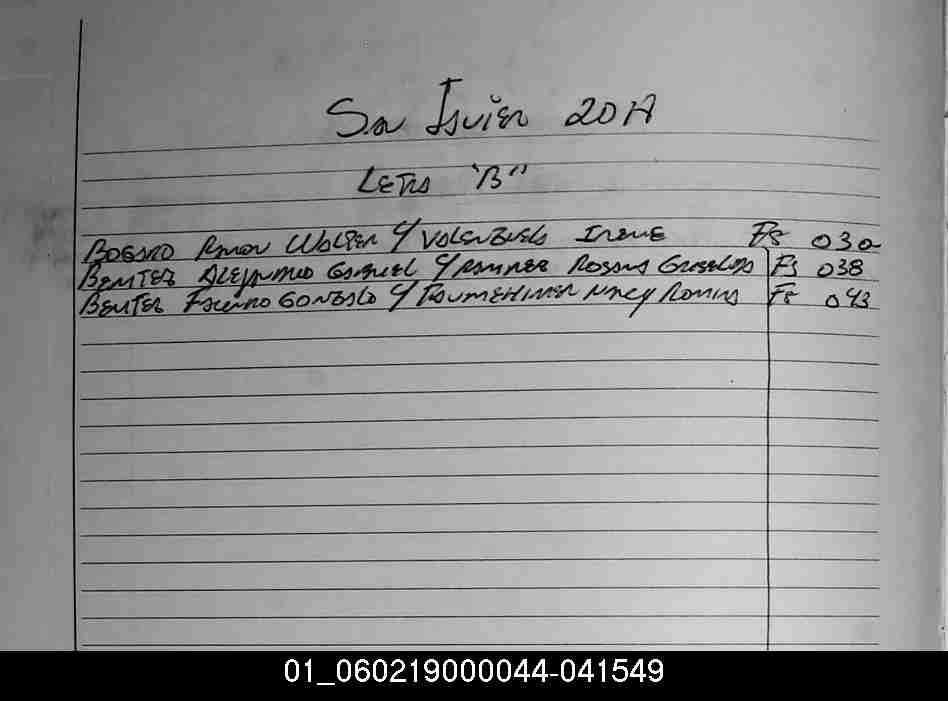 San Javier 2017
Letra "B"
Ramon Walter y Valenzuela Irene Fs 030
Benitez Alejandro Gabriel y Ramirez Rosana Graciela Fs 038
Benitez Facundo Gonzalo y Nancy Romina Fs 043
01_060219000044-041549